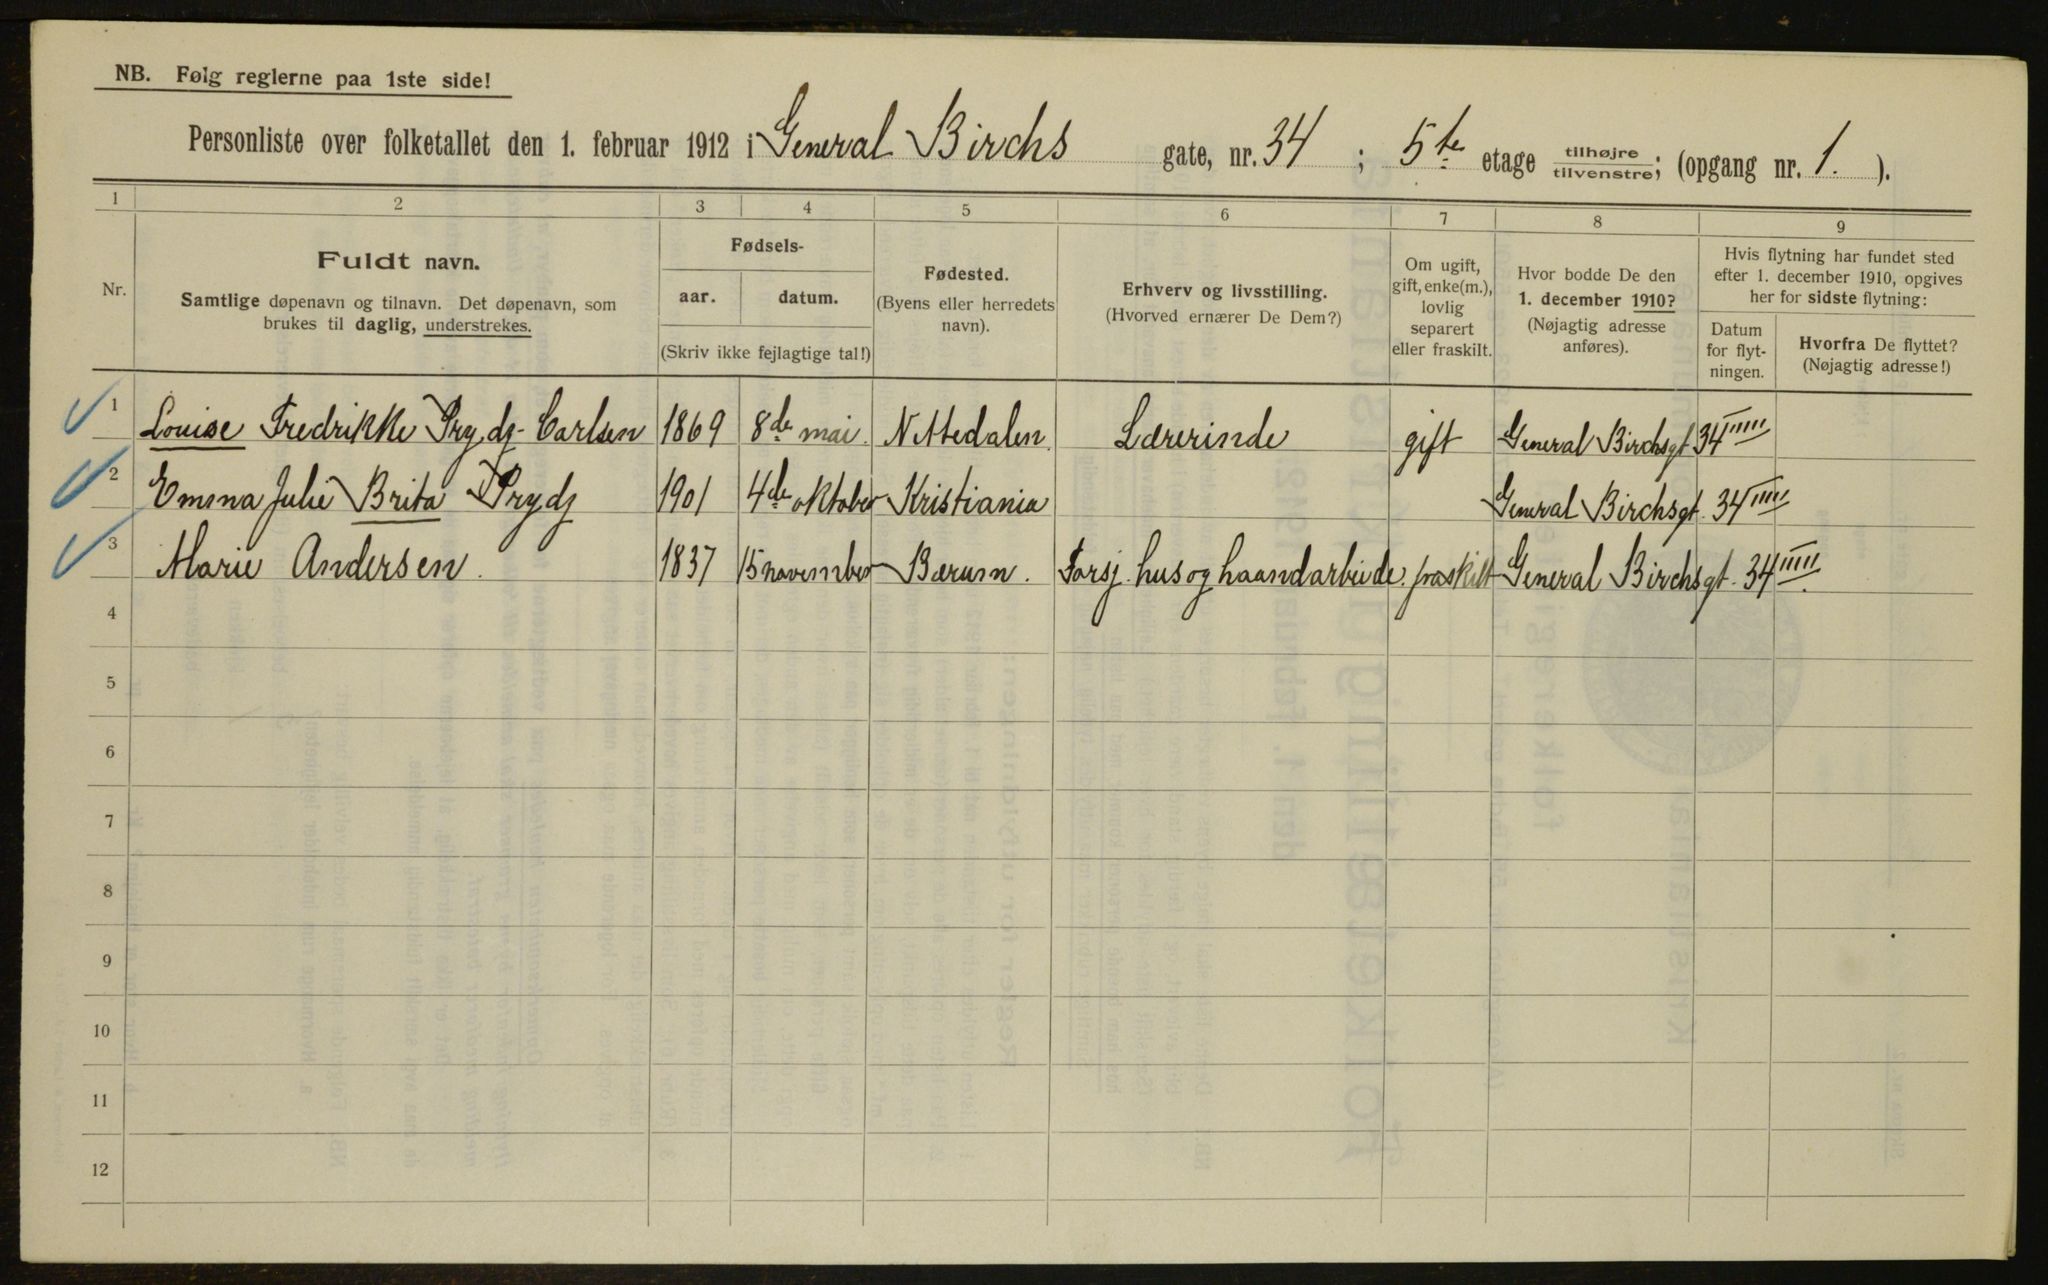 NB. Følg reglerne paa 1ste side!
Personliste over folketallet den 1. februar 1912 i General Birchs gate, nr. 34 ; 5te etage tilhøjre tilvenstre; (opgang nr. 1. ).
1 2 3 4 5 6 7 8 9
Nr.
Fuldt navn.
Samtlige døpenavn og tilnavn. Det døpenavn, som
brukes til daglig, understrekes.
Fødsels-
aar. datum.
(Skriv ikke fejlagtige tal!)
Fødested.
(Byens eller herredets
navn).
Erhverv og livsstilling.
(Hvorved ernærer De Dem?)
Om ugift,
gift, enke(m.),
lovlig
separert
eller fraskilt.
Hvor bodde De den
1. december 1910?
(Nøjagtig adresse
anføres).
Hvis flytning har fundet sted
efter 1. december 1910, opgives
her for sidste flytning:
Datum
for flyt-
ningen.
Hvorfra De flyttet?
(Nøjagtig adresse!)
1 Louise Fredrikke Prydz-Carlsen 1869 8de mai Nittedalen. Lærerinde gift General Birchsgt 34 IIIII
2 Emma Julie Brita Prydz 1901 4de oktober Kristiania General Birchsgt. 34 IIIII
3 Marie Andersen. 1837 15 november Bærum. Forsj. hus og haandarbeide. fraskilt General Birchsgt. 34 IIIII.
4
5
6
7
8
9
10
11
12